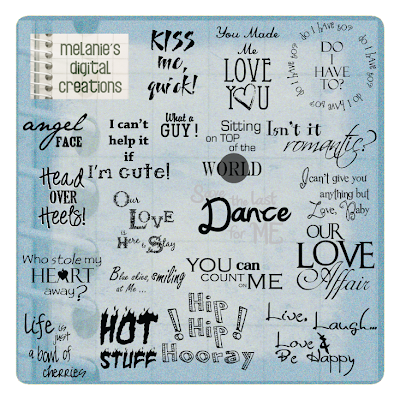 melanie's
digital
creations
KISS
me,
quick!
You Made
Me
LOVE
YOU
do I have to?
do I have to?
DO
I
HAVE
TO?
do I have to?
do I have to?
angel
FACE
I can't
help it
if
I'm cute!
What a
GUY!
Sitting
on TOP
of the
WORLD
Isn't it
romantic?
Head
OVER
Heels!
Our
Love
is
Here to Stay
Save
my last
Dance
for ME
I can't give you
anything but
Love, Baby
OUR
LOVE
Affair
Who stole my
HEART
away?
Blue skies, smiling
at Me ...
YOU can
COUNT on ME
life is
just
a bowl of
cherries
HOT
STUFF
Hip
Hip
Hooray
Live, Laugh...
Love &
Be Happy